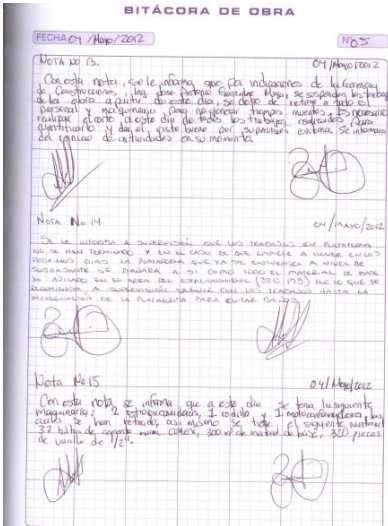 BITÁCORA DE OBRA
FECHA 04 /Mayo/2012 Nº 05
NOTA No 13. 04/Mayo/2012
Con esta nota, se le informa que por indicaciones de la Gerencia
de Construcciones, Ing. Jose Antonio Mejia, se suspenden los trabajos
de la obra a partir de este dia, se debe de retirar a todo el
personal y maquinaria para no generar tiempos muertos. Es necesario
realizar el corte a este dia de todos los trabajos realizados para
cuantificarlo y dar el visto bueno por supervisión externa. Se informara
del reinicio de actividades en su momento.
NOTA No. 14 04/MAYO/2012
SE LE INFORMA A SUPERVISIÓN QUE LOS TRABAJOS EN PLATAFORMA
NO SE HAN TERMINADO Y EN EL CASO DE QUE EMPIECE A LLOVER EN LOS
PROXIMOS DIAS LA PLATAFORMA QUE YA SE ENCUENTRA A NIVEL DE
SUBRASANTE SE DAÑARA A SI COMO TODO EL MATERIAL DE BASE
YA APILADO EN EL AREA DEL ESTACIONAMIENTO (300 M3) POR LO QUE SE
RECOMIENDA A SUPERVISIÓN SEGUIR CON LOS TRABAJOS HASTA LA
DE LA PLATAFORMA PARA EVITAR DAÑOS.
Nota No. 15 04/Mayo/2012
Con esta nota se informa que a este dia se tenia la siguiente
maquinaria: 2 retroexcavadoras, 1 rodillo y 1 motoconformadora, las
cuales se han retirado, asi mismo se tiene el siguiente material
37 bultos de cemento marca CEMEX, 300 m³ de material de base, 320 piezas
de varilla de 1/2".